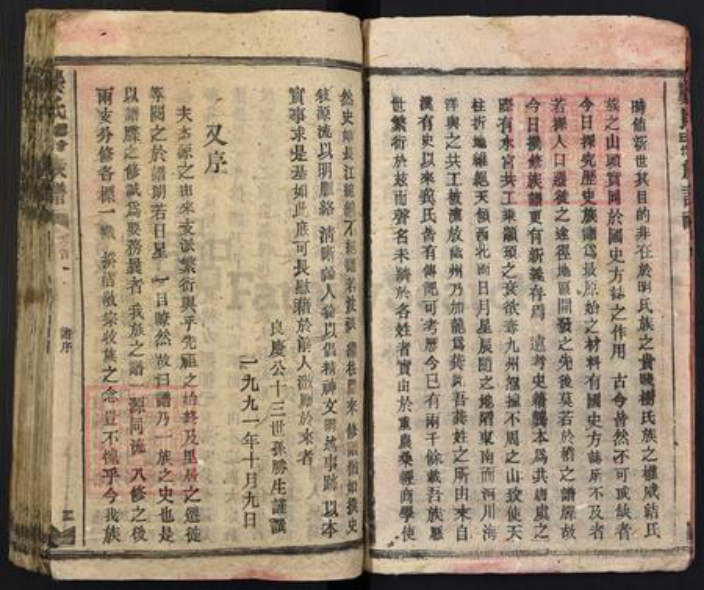 時值新世其目的非在於明氏族之貴賤樹氏族之權威結氏
族之山頭實同於國史方誌之作用 古今皆然不可或缺者
今日探究歷史族譜為最原始之材料有國史方誌所不及者
若探人口遷徙之途徑地區開發之先後莫若於稽之譜牒故
今日撰修族譜更有新義存焉 遠考史籍龔本為共唐虞之
際有水官共工乘顓頊之衰欲霸九州怒觸不周之山致使天
柱折地維絕天傾西北而日月星辰隨之地陷東南而河川海
洋與之共工被流放幽州乃加龍為龔此吾龔姓之所由來自
漢有史以來龔氏皆有傳記可考歷今已有兩千餘載吾族歷
世繁衍於茲而聲名未躋於各姓者實由於重農桑輕商學使
然史如長江
敘源流以明脈絡 清
實事求是基如此庶可長慰藉於前人激勵於來者
良慶公十三世孫勝生謹撰
一九九一年十月九日
又序
夫本源之由來支派繁衍與乎先祖之始終及里居之遷徙
等閱之於譜朗若日星 一目瞭然 故曰譜乃一族之史也是
以譜牒之修誠為要務曩者 我族之譜一源同流 八修之後
兩支分修各標一幟 敬宗收族之念豈不愧乎今我族
氏 族譜
譜序
三